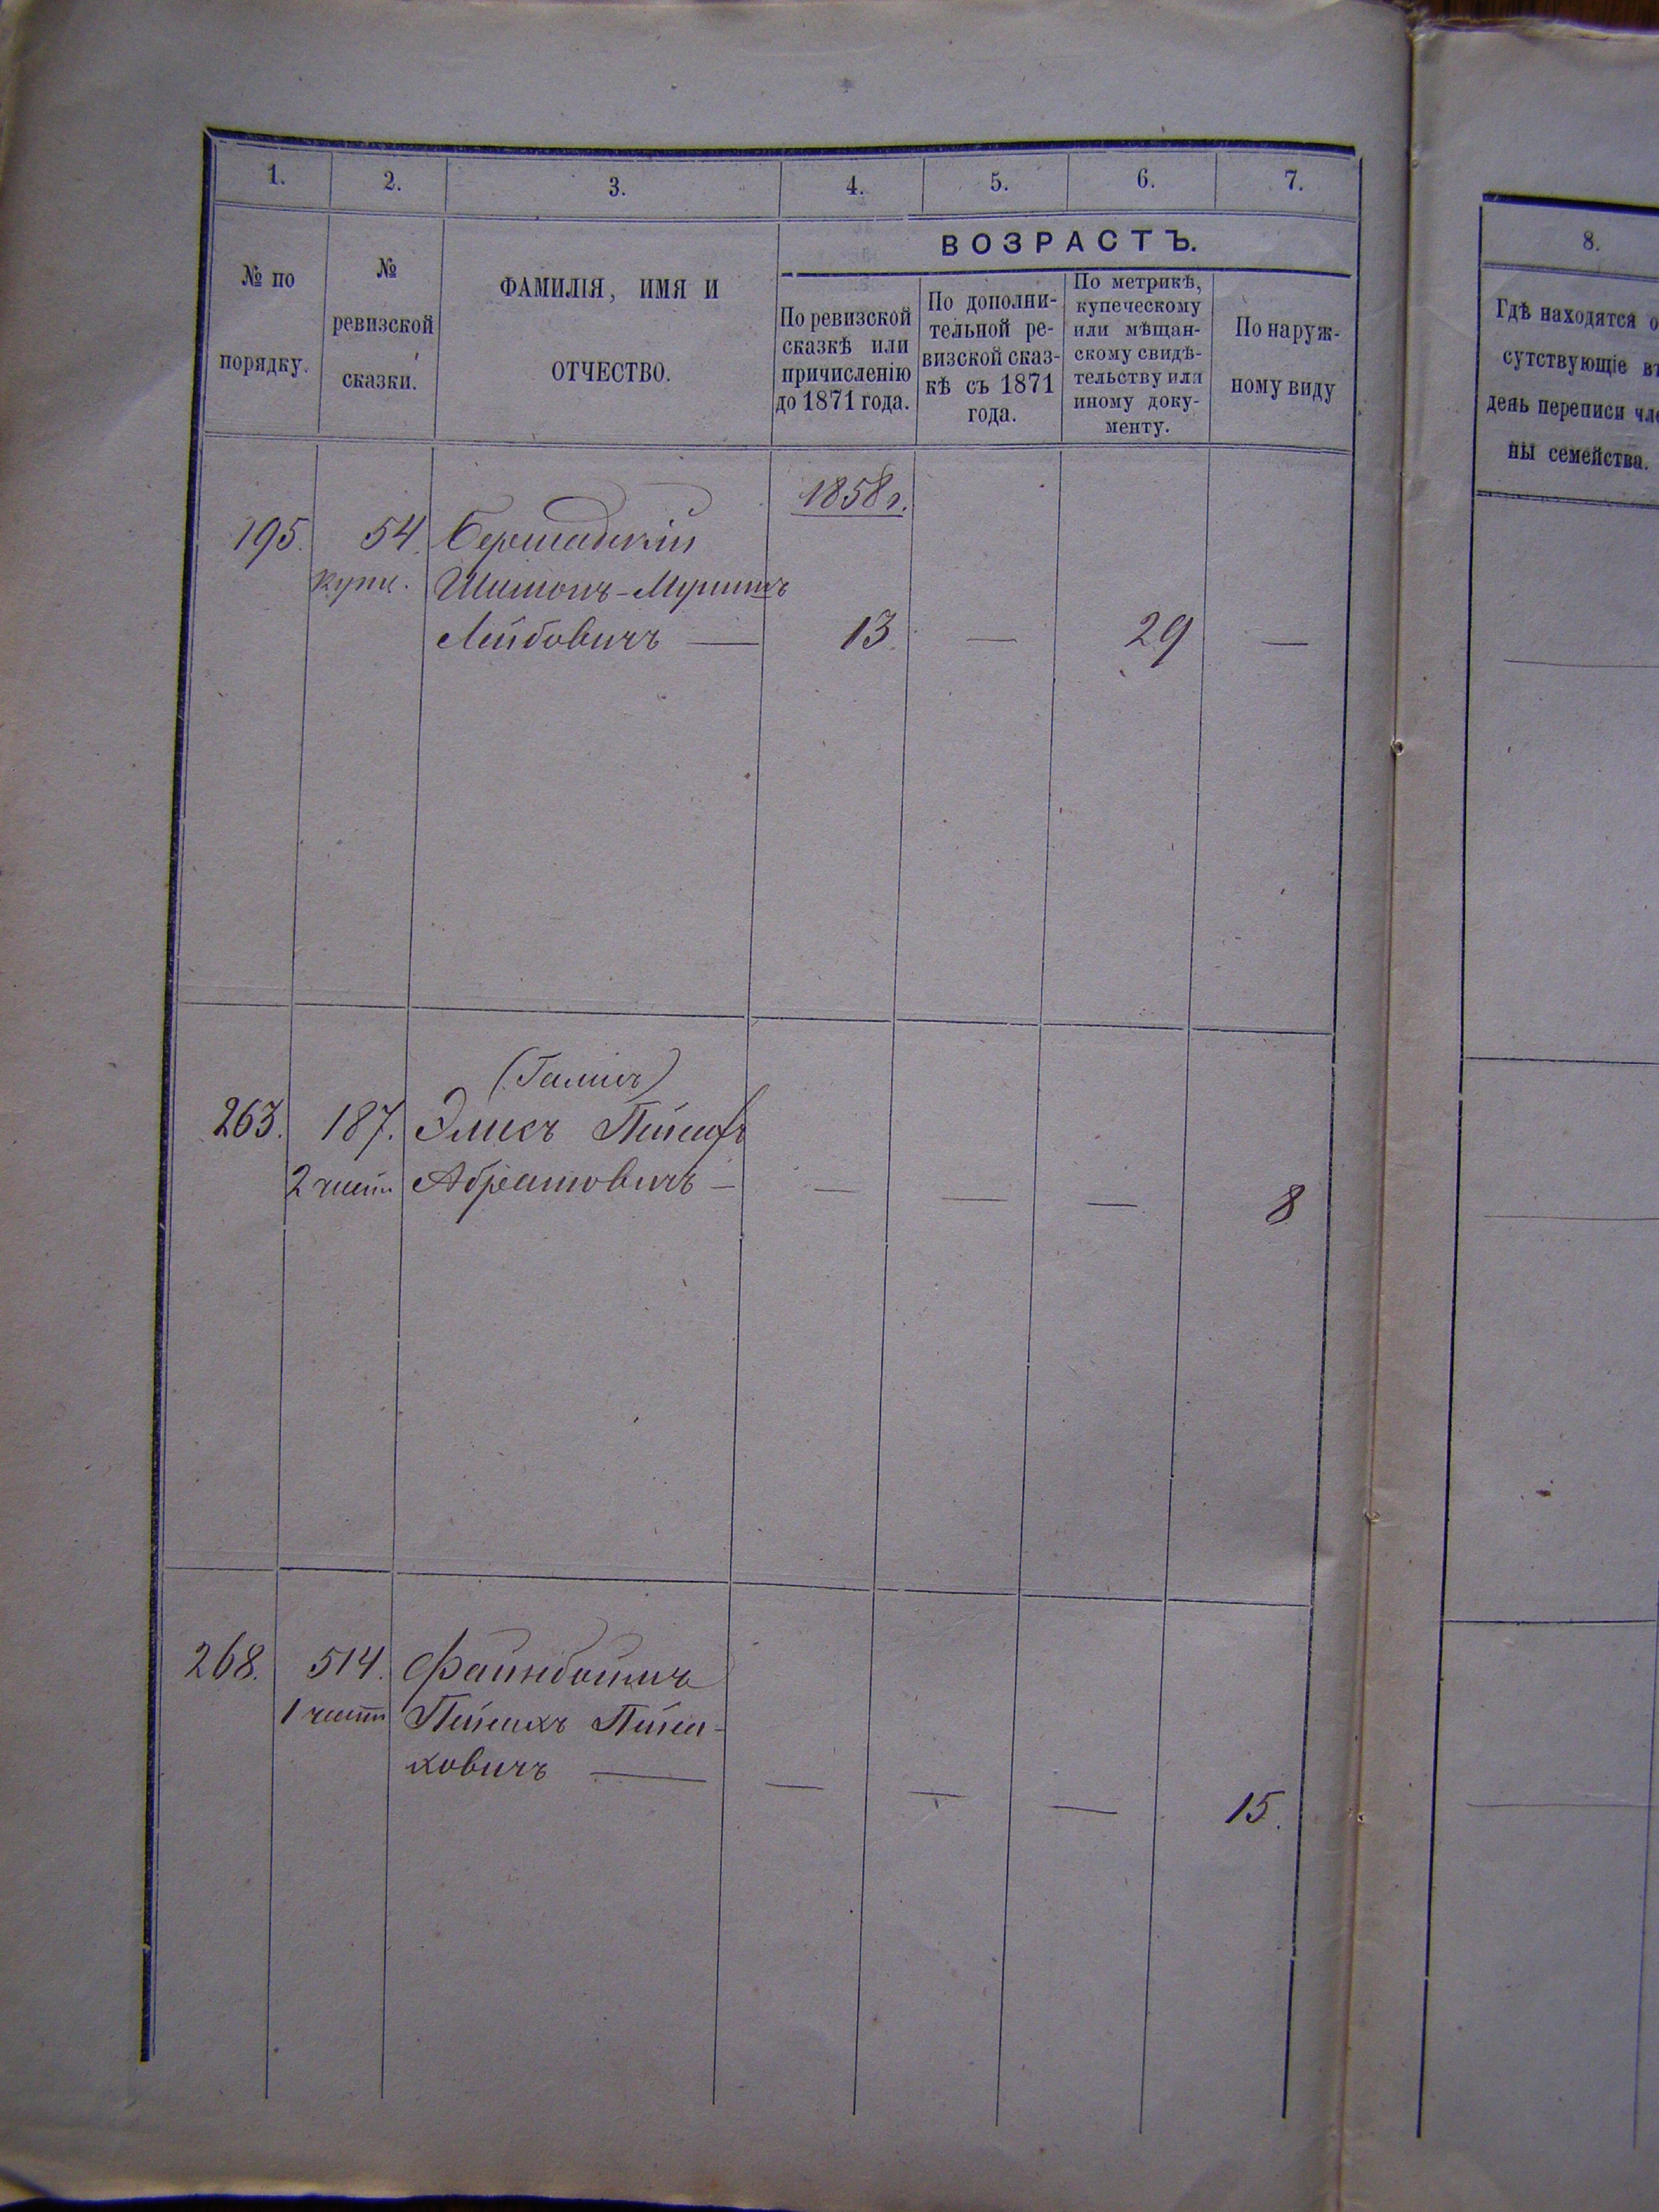 1. 2. 3. 4. 5. 6. 7.
ВОЗРАСТЪ.
№ по
порядку.
№
ревизской
сказки.
ФАМИЛІЯ, ИМЯ И
ОТЧЕСТВО.
По ревизской
сказкѣ или
причисленію
до 1871 года.
По дополни-
тельной ре-
визской сказ-
кѣ съ 1871
года.
По метрикѣ,
купеческому
или мѣщан-
скому свидѣ-
тельству или
иному доку-
менту.
По наруж-
ному виду
1858 г.
195. 54. Бершадскій
купч. Шимонъ-
Лейбовичъ — 13. — 29 —
(Галисъ)
263. 187. Элисъ
2 части Абрамовичъ — — — — 8
268. 514. Файнбоймъ
1 части Пейсахъ Пейса-
ховичъ — — — — 15.
8.
Гдѣ находятся о
сутствующіе въ
день переписи чле
ны семейства.